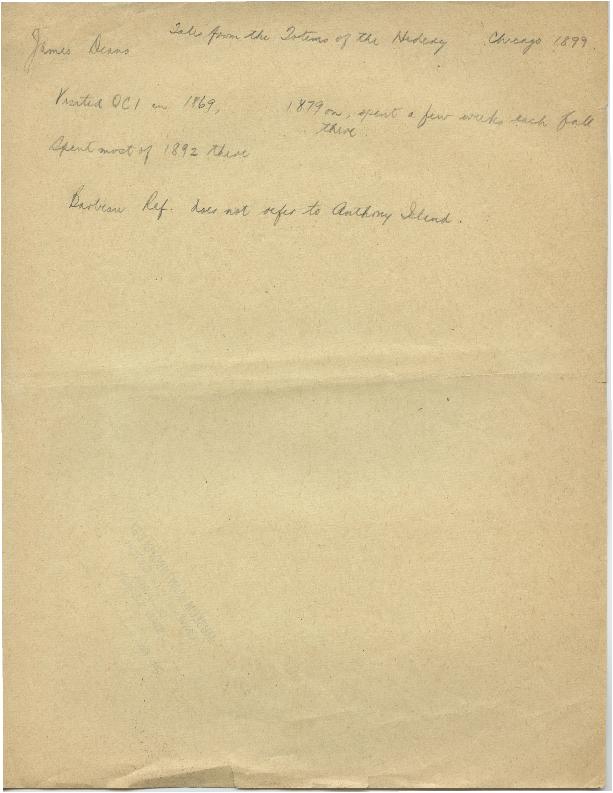 James Deans Tales from the Totems of the Hidery Chicago 1899.
Visited QCI in 1869, 1879 on, spent a few weeks each fall
there
Spent most of 1892 there
Barbeau Ref. does not refer to Anthony Island.